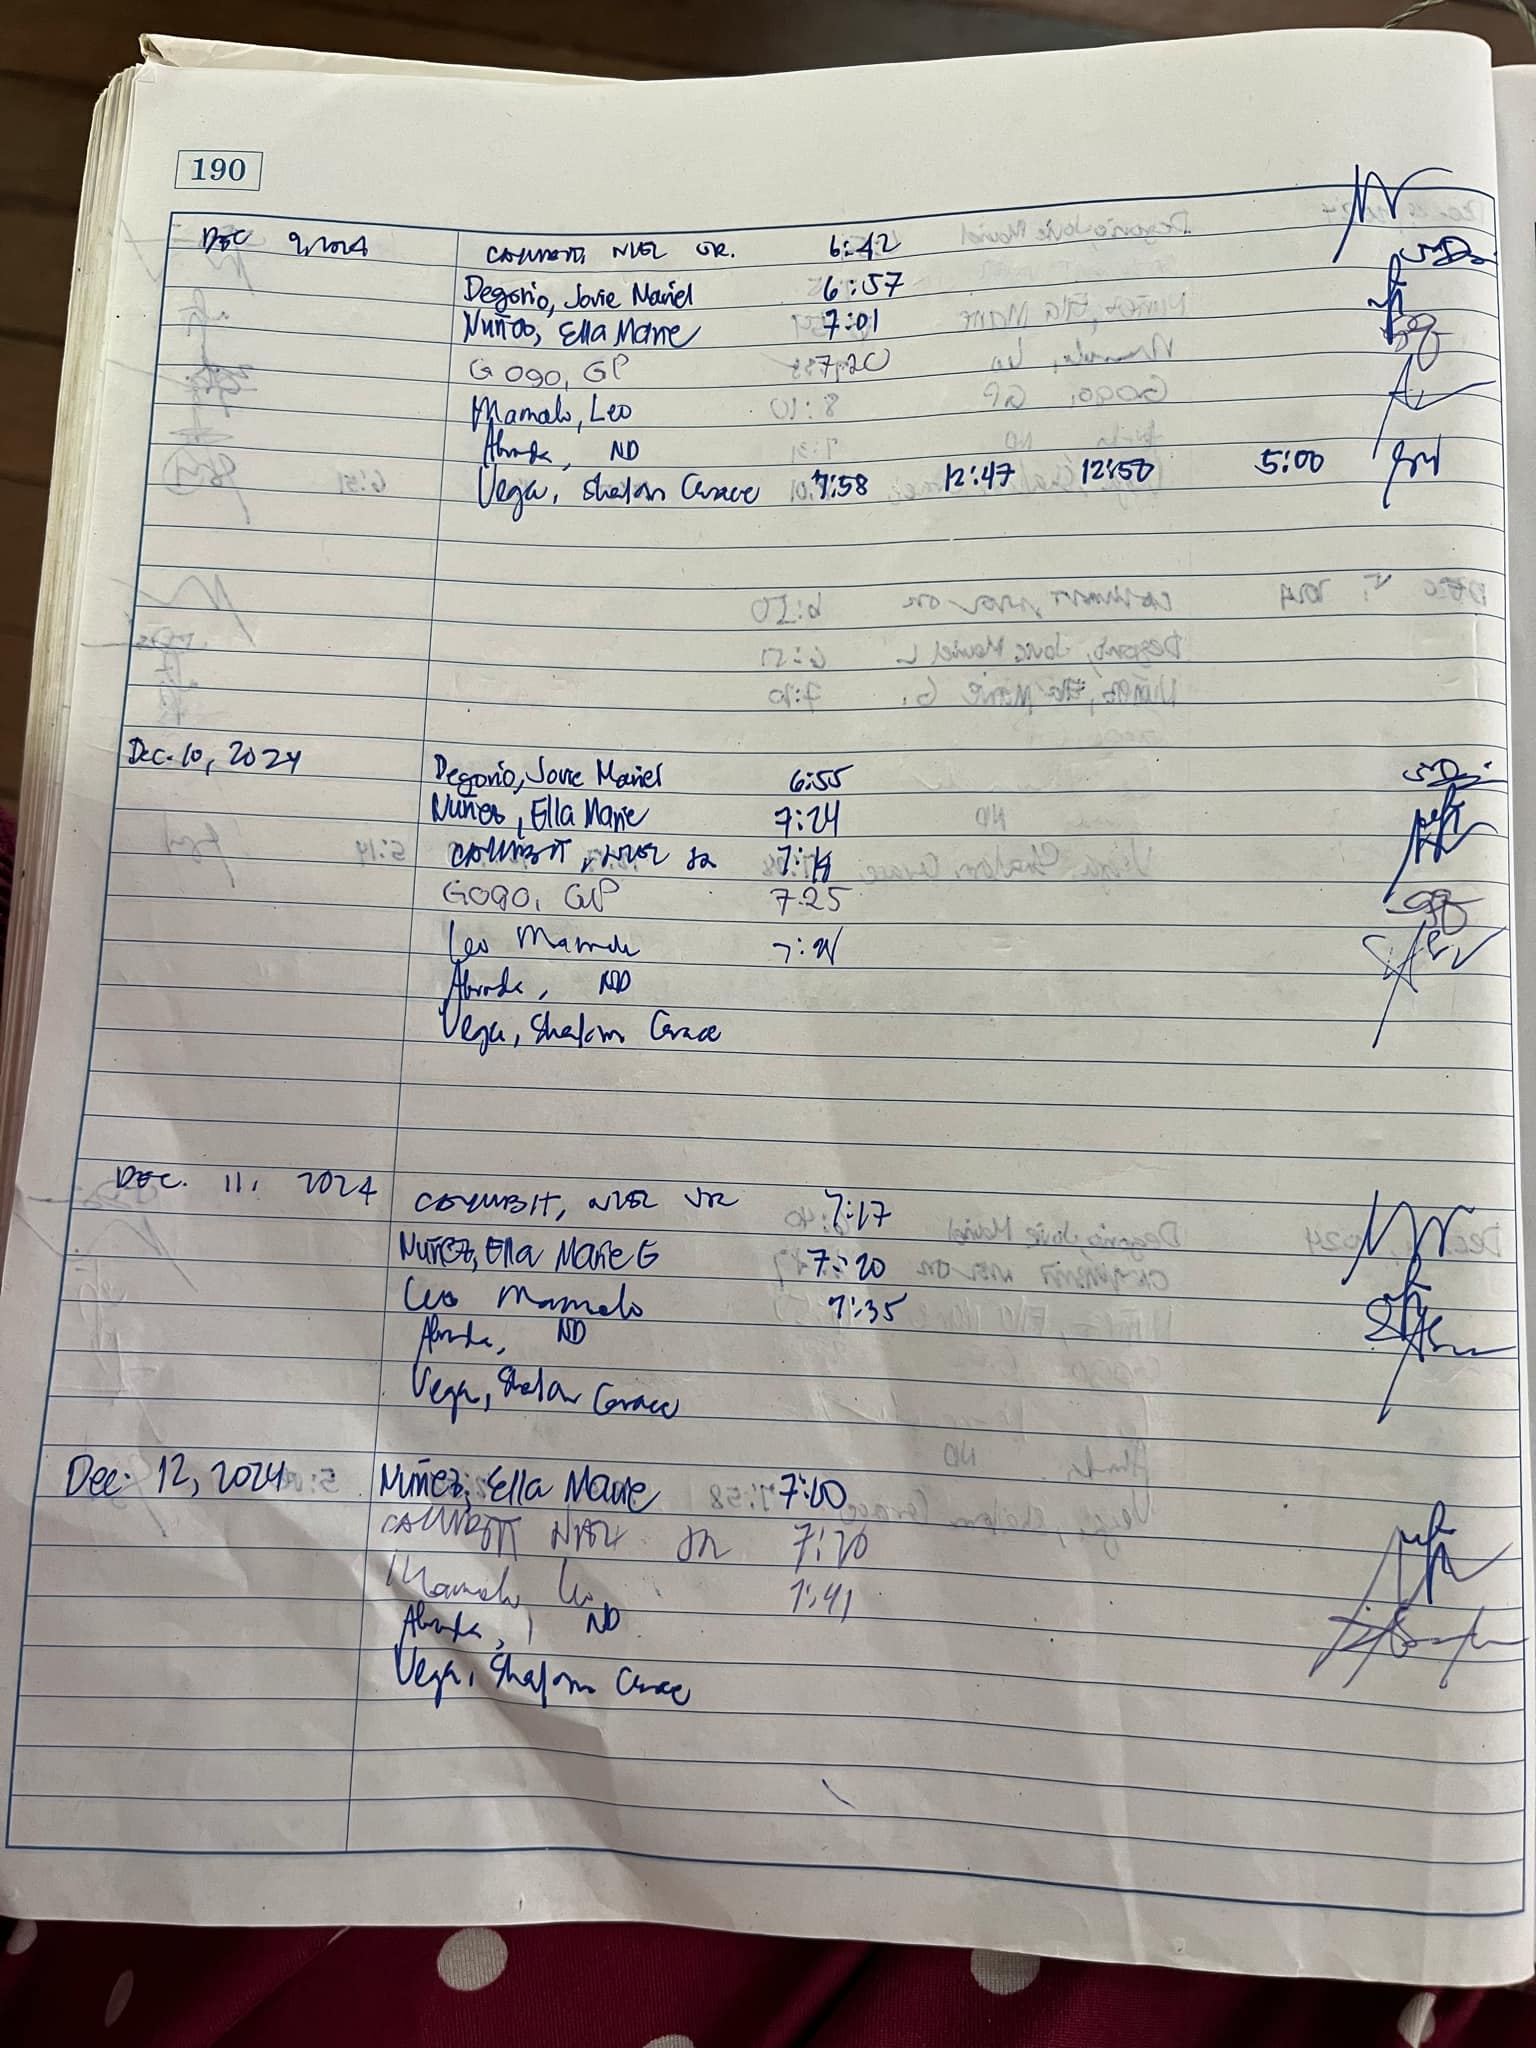 190
DEC 9, 2024 CAHUMBIT, NIEL JR. 6:42
Degorio, Jovie Mariel 6:57
Nuñez, Ella Marie 7:01
GOgO, GP 7:20
Mamalo, Leo
ND
Vega, Shalom Grace 7:58 12:47 12:50 5:00
Dec. 10, 2024 Degorio, Jovie Mariel 6:55
Nuñez, Ella Marie 7:24
NIEL JR
GOgO, GP 7:25
Leo Mamalo
ND
Vega, Shalom Grace
DEC. 11, 2024 NIEL JR 7:17
Nuñez, Ella Marie G 7:20
Leo Mamalo 7:35
ND
Vega, Shalom Grace
Dec. 12, 2024 Nuñez, Ella Marie 7:00
NIEL JR 7:20
Mamalo Leo 7:41
ND
Vega, Shalom Grace